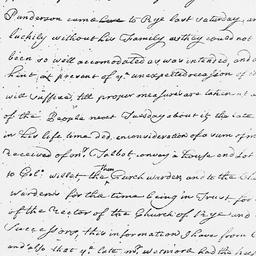 Punderson came here to Rye last saturday, and
luckily without his Family as they could not
been so well accomodated as was intended, and
hint, at present of yᵉ unexpected reason of
will suffeed, till proper measures are taken at a
of the People next Tuesday about it the late
in his life time did, in consideration of a sum of m
Received of mʳ Talbot convey a house and Lot
to Colˡ willet then Church warden, and to the Ch
wardens for the time being in Trust for
of the Rector of the Church of Rye and
Successors, this information I have from
and also that yᵉ late mʳ wetmore had the